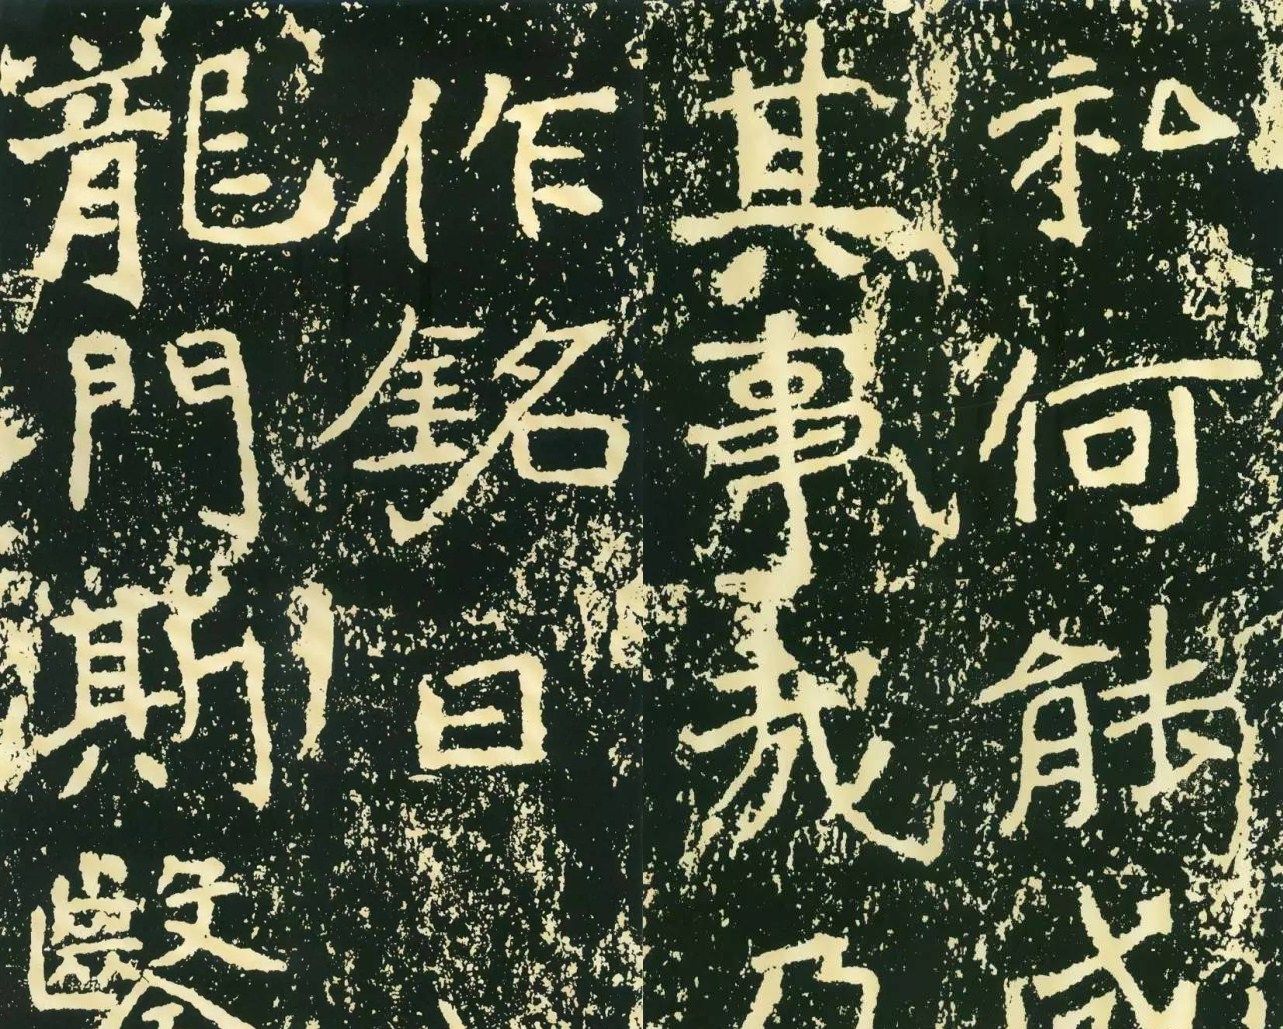 私何能成
其事哉乃
作銘曰
龍門斯鑿